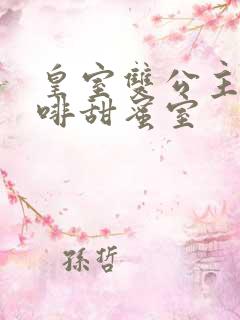 皇室雙公主
啡甜蜜室
孫哲